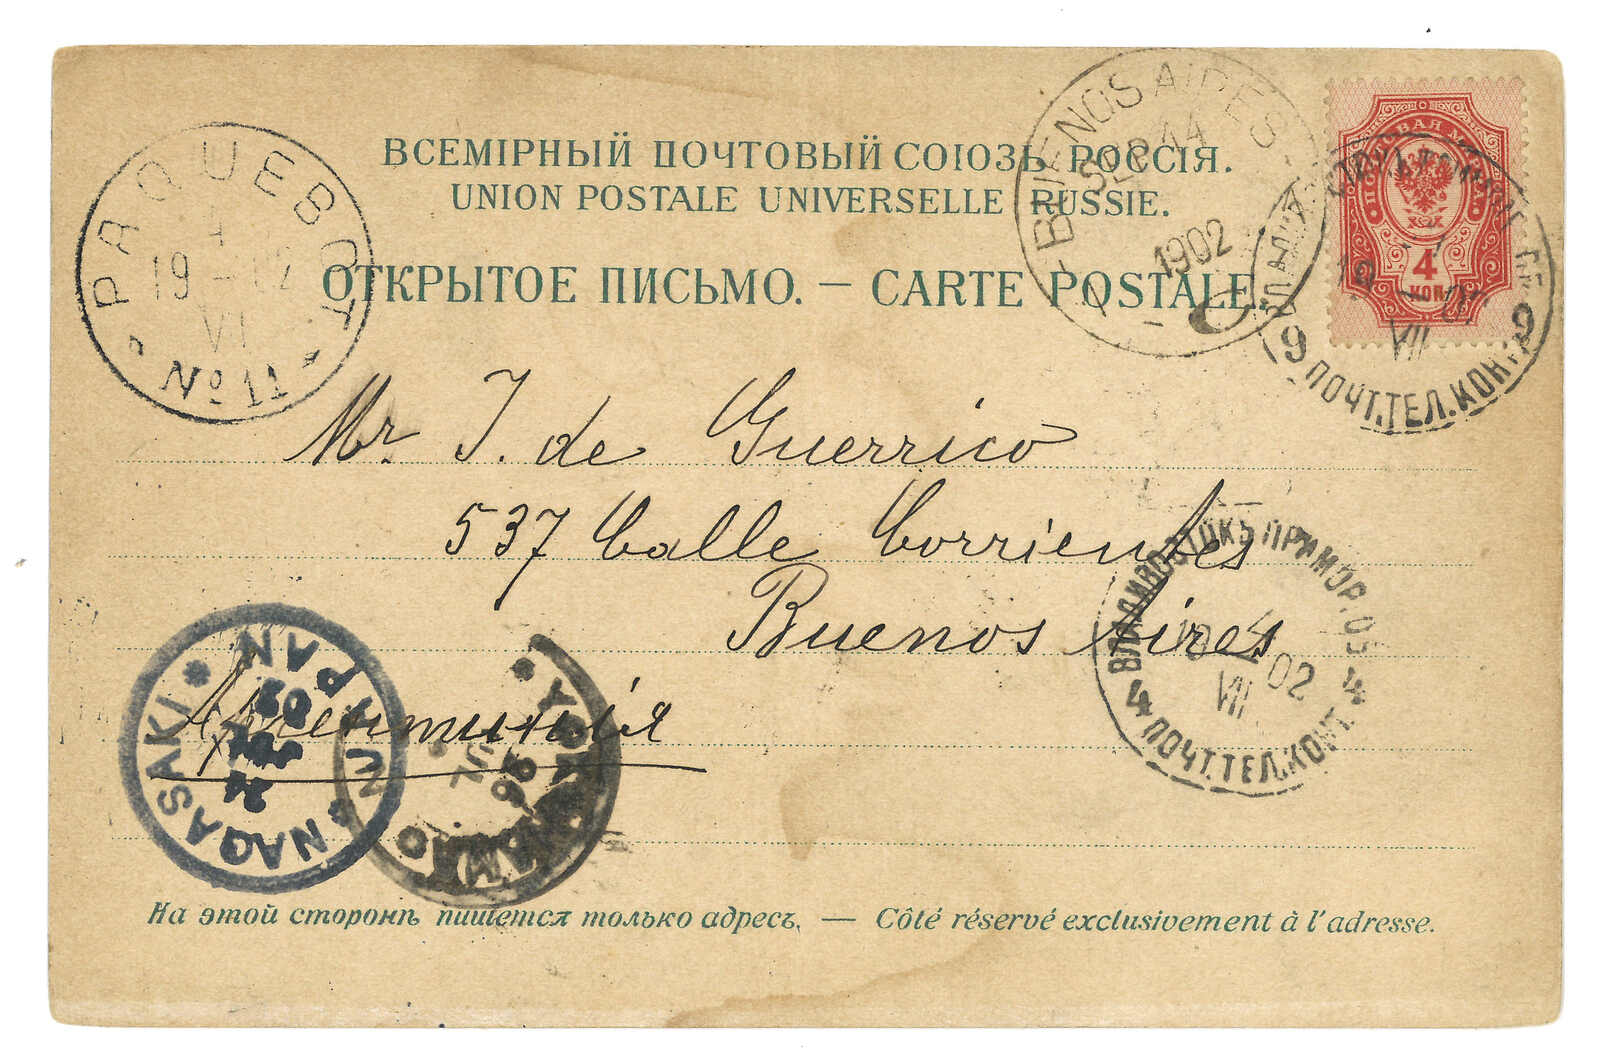 ВСЕМІРНЫЙ ПОЧТОВЫЙ СОЮЗЪ, РОССІЯ.
UNION POSTALE UNIVERSELLE RUSSIE.
ОТКРЫТОЕ ПИСЬМО. — CARTE POSTALE.
PAQUEBOT
19 - 02
VI
№ 11
BUENOS AIRES
1902
ПОЧТОВАЯ МАРКА
4
КОП
VII
9 ПОЧТ.ТЕЛ.КОНТ. 9
Mr J. de Guerrico
537 Calle Corrientes
Buenos Aires
Аргентинія
ВЛАДИВОСТОКЪ ПРИМОР. ОБ.
02
VII
4 ПОЧТ.ТЕЛ.КОНТ. 4
NAGASAKI
JAPAN
24
02
YOKOHAMA
На этой сторонѣ пишется только адресъ. — Côté réservé exclusivement à l'adresse.